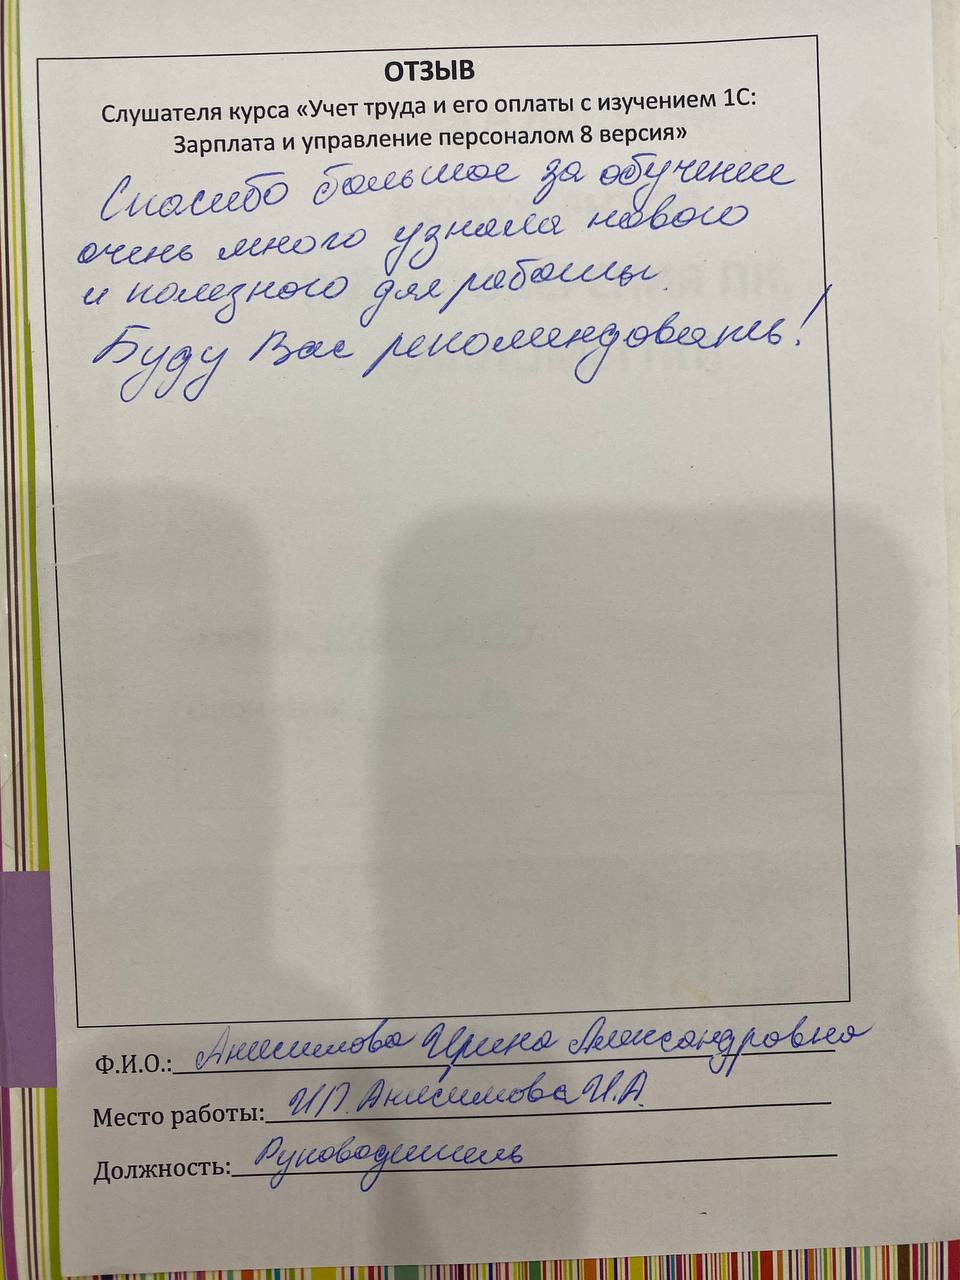 ОТЗЫВ
Слушателя курса «Учет труда и его оплаты с изучением 1С:
Зарплата и управление персоналом 8 версия»
Спасибо большое за обучение
очень много узнала нового
и полезного для работы.
Буду Вас рекомендовать!
Ф.И.О.: Анисимова Ирина Александровна
Место работы: ИП Анисимова И.А.
Должность: Руководитель